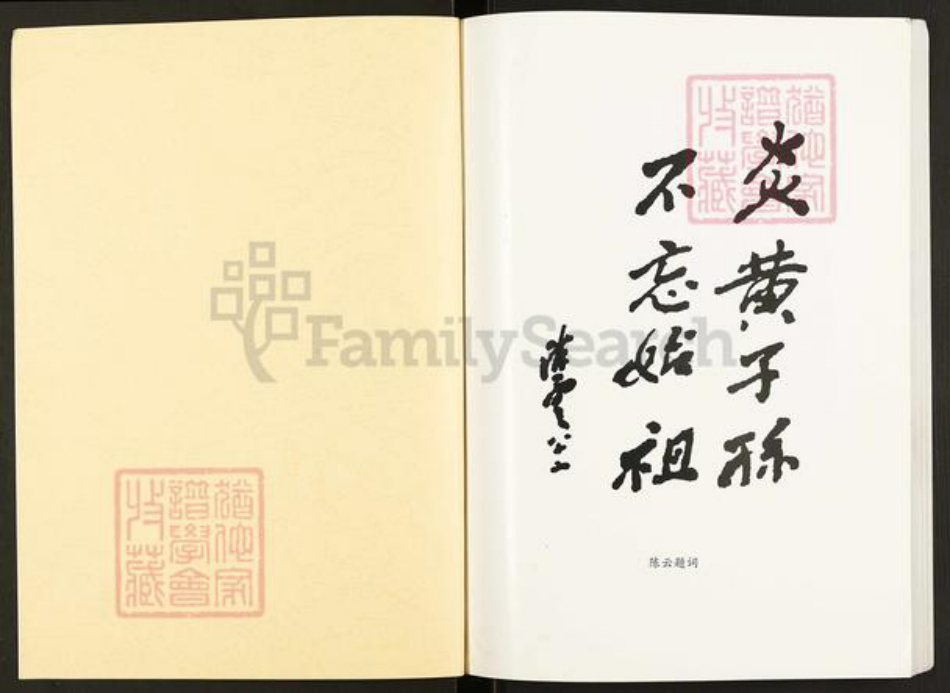 炎黄子孫
不忘始祖
陳雲
八十
陈云题词
猶他家
譜學會
收藏
猶他家
譜學會
收藏
FamilySearch